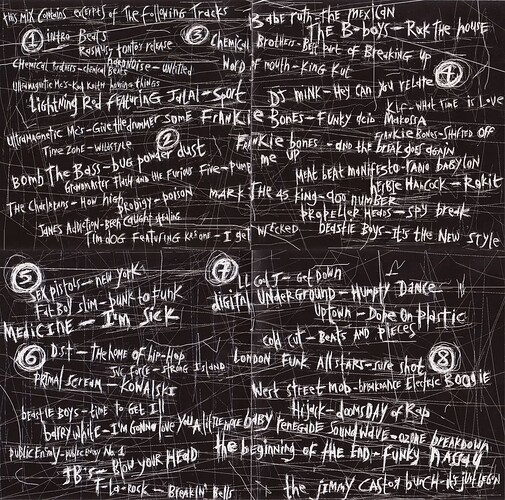 this mix contains excerpts of the following tracks
① intro Beats
Rasmus-tontos release
hardnoise-untitled
Chemical Brothers-chemical Beats
Ultramagnetic Mc's-Kool Keith housing things
Lightning Rod featuring Jalal-Sport
Ultramagnetic Mc's-Give the drummer some
②
Time Zone-wildstyle
Bomb The Bass-bug powder dust
Grandmaster Flash and the Furious Five-Pump me up
The Charlatans-How high
Prodigy-poison
Janes Addiction-Been caught stealing
Tim dog featuring krs one-I get wrecked
③
Babe ruth-the mexican
The B-boys-Rock the house
Chemical Brothers-Best part of Breaking up
Word of mouth-King Kut
④
DJ mink-Hey can you relate
KLF-what time is Love
Frankie Bones-Funky acid Makossa
Frankie Bones-Shifted off
Frankie bones-and the break does again
meat beat manifesto-radio babylon
Herbie Hancock-Rokit
mark the 45 king-900 number
Propeller Heads-spy break
beastie Boys-It's the New Style
⑤
Sex pistols-new york
Fat Boy slim-punk to funk
Medicine-I'm Sick
⑥
D.st-The home of hip-Hop
JVC Force-strong Island
Primal scream-Kowalski
beastie Boys-time To get Ill
barry white-I'm gonna love you a little more baby
public Enemy-public enemy No.1
JB's-Blow your HEAD
T-La-Rock-Breakin' Bells
⑦
LL Cool J-Get Down
digital Underground-Humpty Dance
Uptown-Dope on Plastic
cold cut-Beats and pieces
London Funk Allstars-sure shot
⑧
West street Mob-breakdance Electric Boogie
Hijack-doomsday of Rap
renegade Soundwave-ozone breakdown
the beginning of the End-Funky Nassau
the jimmy castor bunch-it's just begun